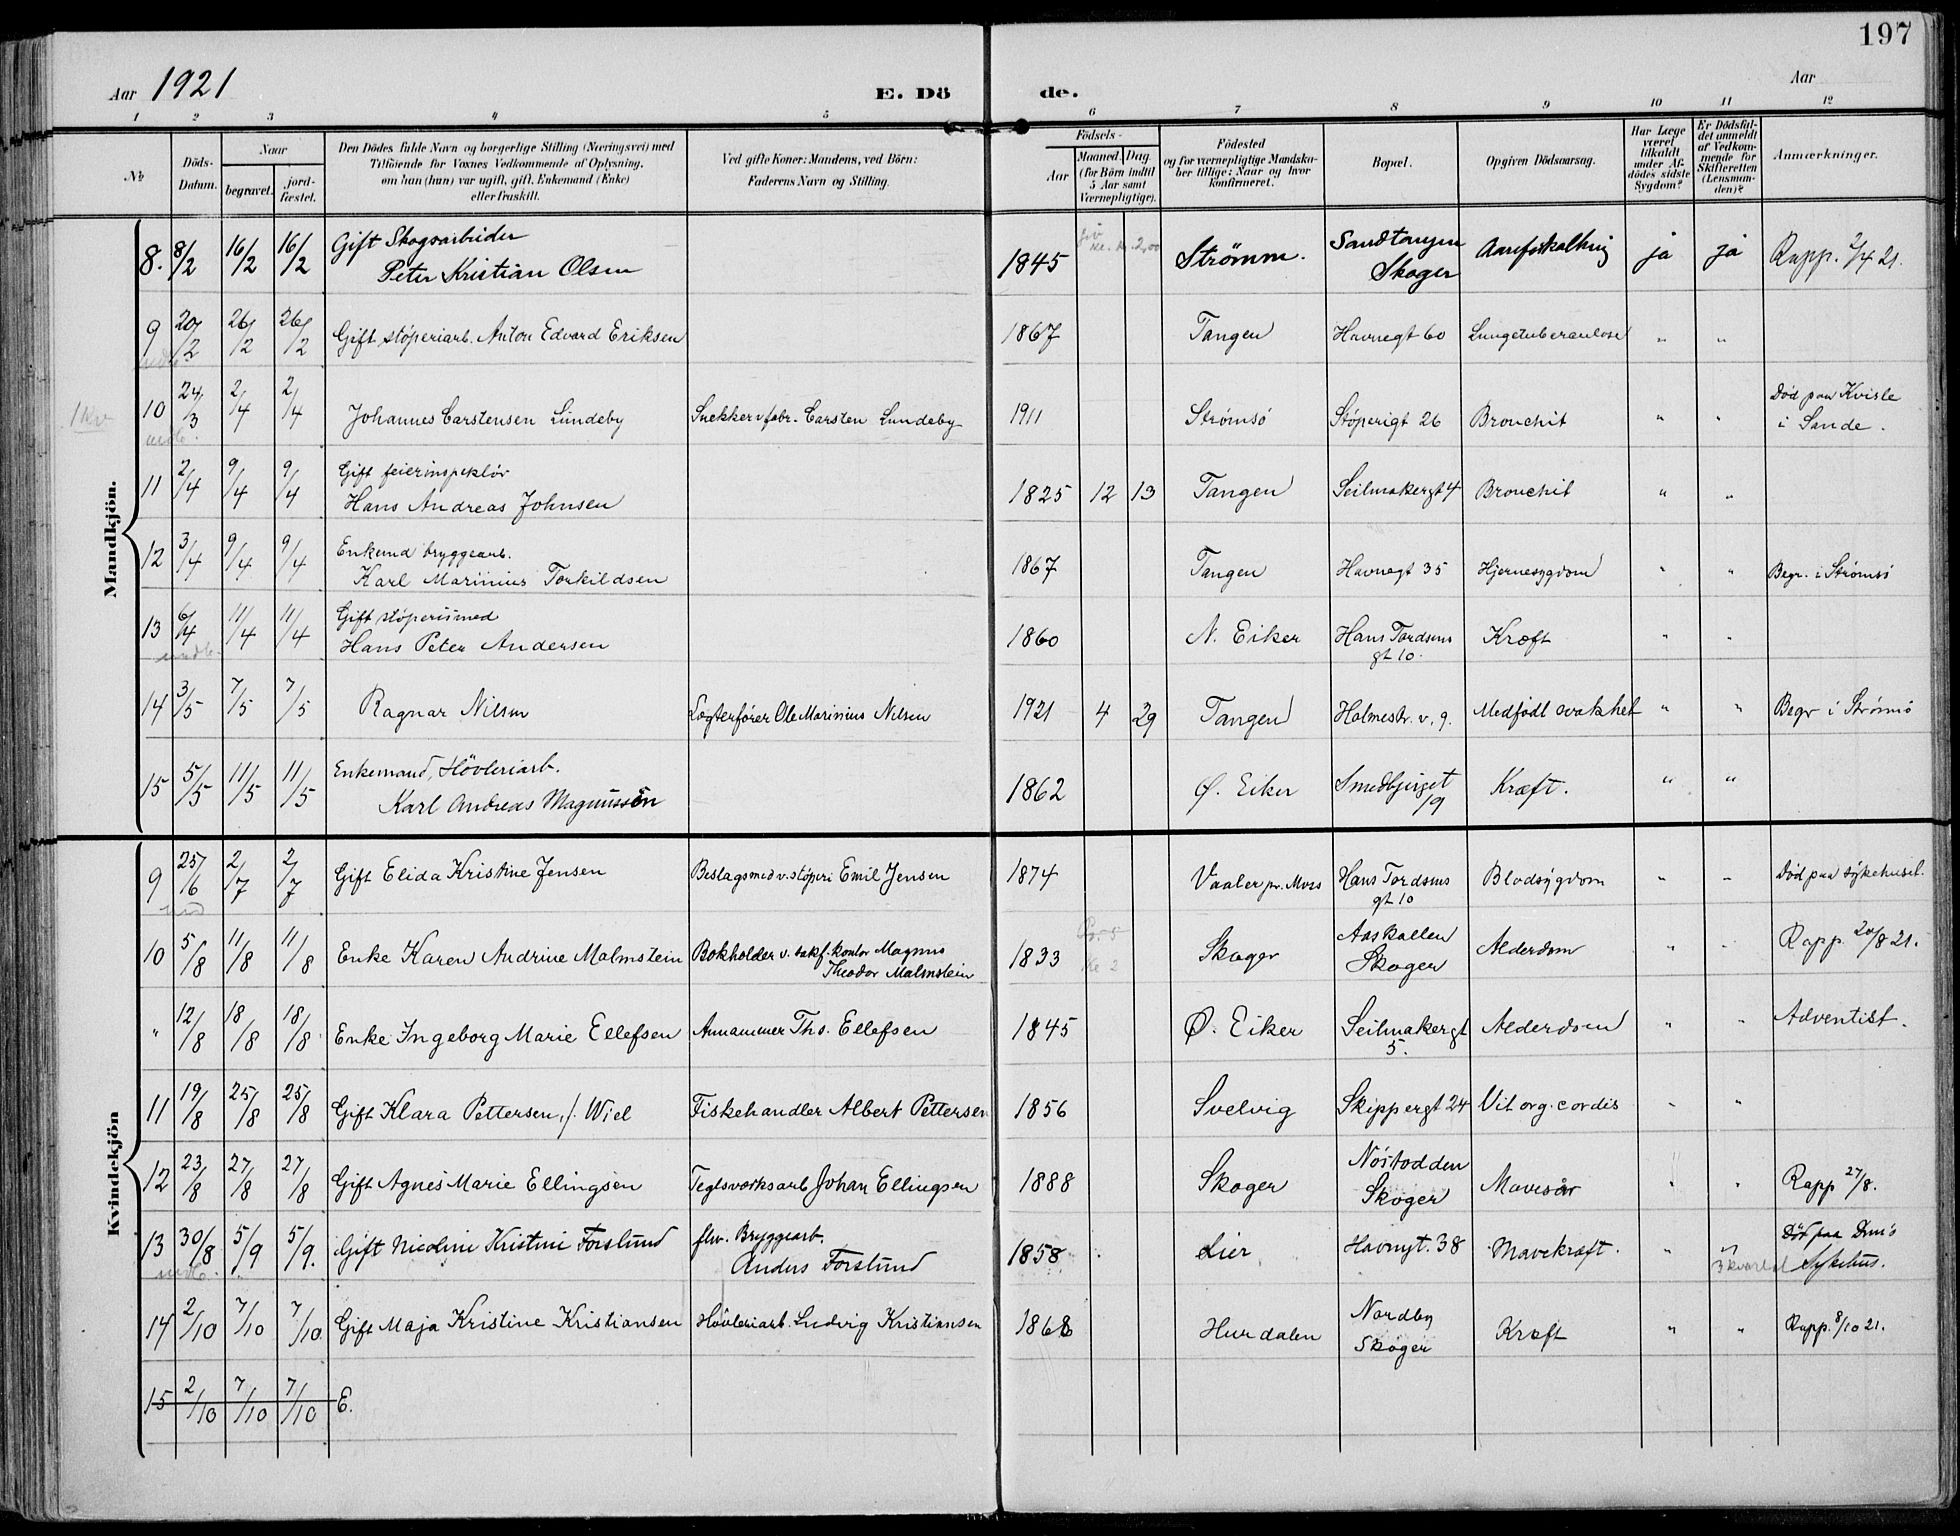 197
Aar 1921
E. Dö
de.
Aar
1 2 3 4 5 6 7 8 9 10 11 12
№
Döds-
Datum.
Naar
begravet.
jord-
fæstet.
Den Dödes fulde Navn og borgerlige Stilling (Næringsvei) med
Tilföiende for Voxnes Vedkommende af Oplysning,
om han (hun) var ugift, gift, Enkemand (Enke)
eller fraskilt.
Ved gifte Koner: Mandens, ved Börn:
Faderens Navn og Stilling.
Födsels-
Aar
Maaned. Dag.
(for Börn indtil
5 Aar samt
Værnepligtige).
Födested
og for værnepligtige Mandska-
ber tillige: Naar og hvor
konfirmeret.
Bopæl.
Opgiven Dödsaarsag.
Har Læge
været
tilkaldt
under Af-
dödes sidste
Sygdom?
Er Dödsfal-
det anmeldt
af Vedkom-
mende for
Skifteretten
(Lensman-
den)?
Anmærkninger.
Mandkjön.
8. 8/2 16/2 16/2 Gift Skogsarbeider
Peter Kristian Olsen
1845 Strømm. Sandtangen
Skoger
Aareforkalkning ja ja Rapp. 2/4 21.
9 20/2 26/2 26/2 Gift støperiarb. Anton Edvard Eriksen 1867 Tangen Havnegt 60 Lungetuberculose " "
1 Kv
10 24/3 2/4 2/4 Johannes Carstensen Lundeby Snekker v. fabr. Carsten Lundeby 1911 Strømsö Støperigt 26 Bronchit " " Død paa Kvisle
i Sande.
11 2/4 9/4 9/4 Gift feierinspektör
Hans Andreas Johnsen
1825 12 13 Tangen Seilmakergt 4 Bronchit " "
12 3/4 9/4 9/4 Enkemd bryggearb.
Karl Marinius Torkildsen
1867 Tangen Havnegt 35 Hjernesygdom " " Begr. i Strømsö
13 6/4 11/4 11/4 Gift støperismed
Hans Peter Andersen
1860 N. Eiker Hans Tordsens
gt 10.
Kræft " "
14 3/5 7/5 7/5 Ragnar Nilsen Lægterfører Ole Marinius Nilsen 1921 4 29 Tangen Holmestr. v. 9. Medfödt svakhet " " Begr i Strømsö
15 5/5 11/5 11/5 Enkemand, Hövleriarb.
Karl Andreas Magnussen
1862 Ø. Eiker Smedbjerget
19
Kræft. " "
Kvindekjön
9 25/6 2/7 2/7 Gift Elida Kristine Jensen Beslagsmed v. støperi Emil Jensen 1874 Vaaler pr. Moss Hans Tordsens
gt 10
Blodsygdom " " Död paa sykehuset.
10 5/8 11/8 11/8 Enke Karen Andrine Malmstein Bokholder v. sakf. kontor Magnus
Theodor Malmstein
1833 Skoger Aaskollen
Skoger
Alderdom " " Rapp. 20/8 21.
" 12/8 18/8 18/8 Enke Ingeborg Marie Ellefsen Annammer Ths. Ellefsen 1845 Ø. Eiker Seilmakergt
5.
Alderdom " " Adventist.
11 19/8 25/8 25/8 Gift Klara Pettersen, f. Wiel Fiskehandler Albert Pettersen 1856 Svelvig Skippergt 24 Vit. org. cordis " "
12 23/8 27/8 27/8 Gift Agnes Marie Ellingsen Teglsværksarb Johan Ellingsen 1888 Skoger Nöstodden
Skoger
Mavesår " " Rapp 27/8.
13 30/8 5/9 5/9. Gift Nicoline Kristine Forslund fhv. Bryggearb.
Anders Forslund
1858 Lier Havngt. 38 Mavekræft. " " Död paa Drms
Sykehus.
3 kvartal
14 2/10 7/10 7/10 Gift Maja Kristine Kristiansen Hövleriarb. Ludvig Kristiansen 1868 Hurdalen Nordby
Skoger
Kræft " " Rapp. 8/10 21.
15 2/10 7/10 7/10 E.